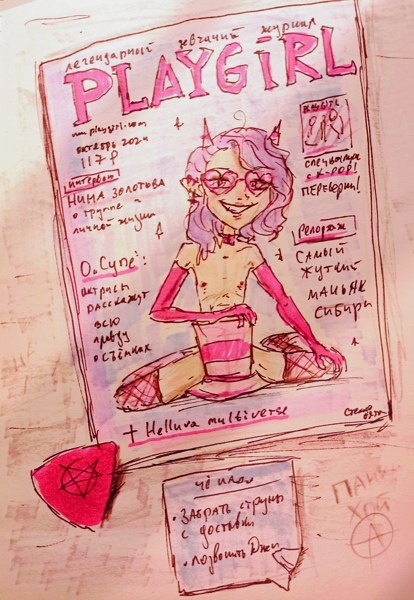 легендарный девчачий журнал
PLAYGIRL
www.playgirl.com
октябрь 2024
117 ₽
интервью
Нина Золотова
о группе и
личной жизни
О„Супе”:
актрисы
расскажут
всю
правду
о съёмках
спецвыпуск
с K-POP!
Переверни!
Репортаж
Самый
жуткий
маньяк
Сибири
+ Helluva multiverse
чё надо
• Забрать струны
с доставки
• позвонить Джи
Панки
Хой